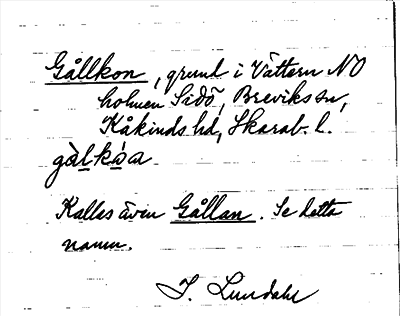 Gållkon, grund i Vättern NO
holmen Sidö, Breviks sn,
Kåkinds hd, Skarab. l.
gàlkóa
Kallas även Gållan. Se detta
namn.
I. Lundahl